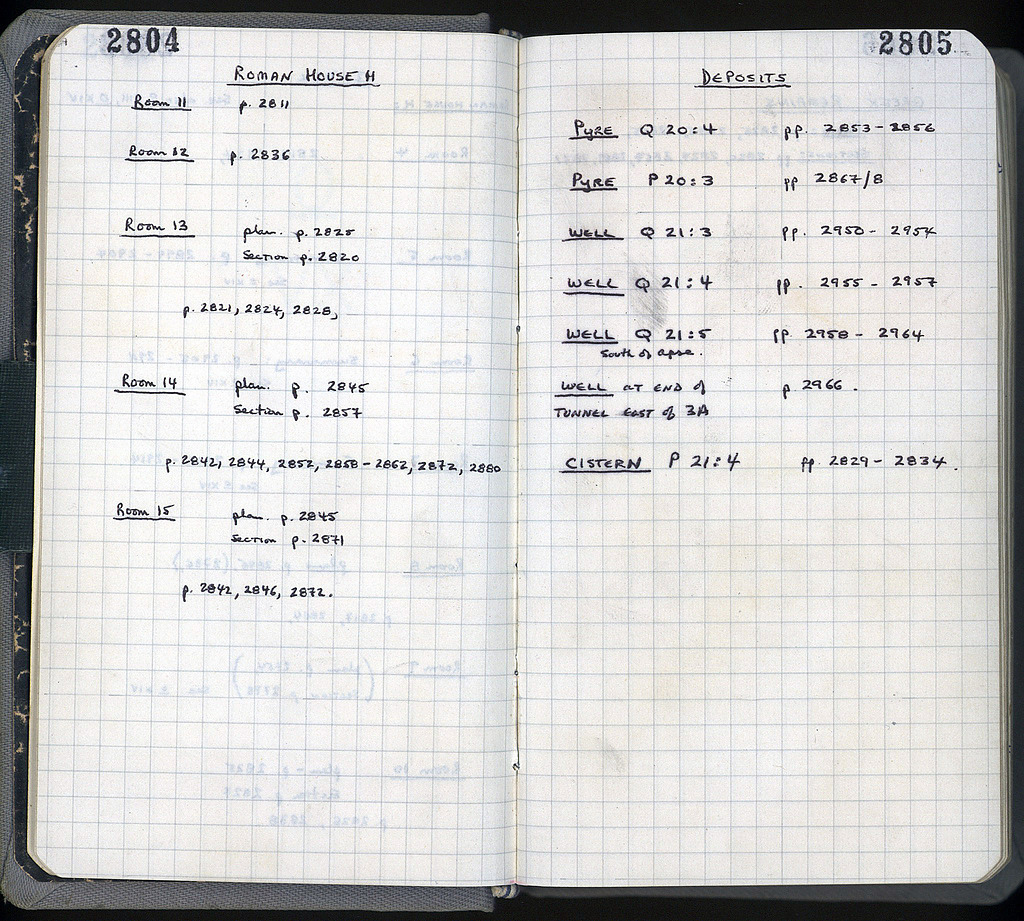 2804
ROMAN HOUSE H
Room 11 p. 2811
Room 12 p. 2836
Room 13 plan. p. 2825
Section p. 2820
p. 2821, 2824, 2828,
Room 14 plan. p. 2845
Section p. 2857
p. 2842, 2844, 2852, 2858-2862, 2872, 2880
Room 15 plan. p. 2845
Section p. 2871
p. 2842, 2846, 2872.
2805
DEPOSITS
PYRE Q 20:4 pp. 2853-2856
PYRE P 20:3 pp 2867/8
WELL Q 21:3 pp. 2950-2954
WELL Q 21:4 pp. 2955-2957
WELL Q 21:5 pp. 2958-2964
South of apse.
WELL AT END of p. 2966.
TUNNEL EAST of 3A
CISTERN P 21:4 pp. 2829-2834.